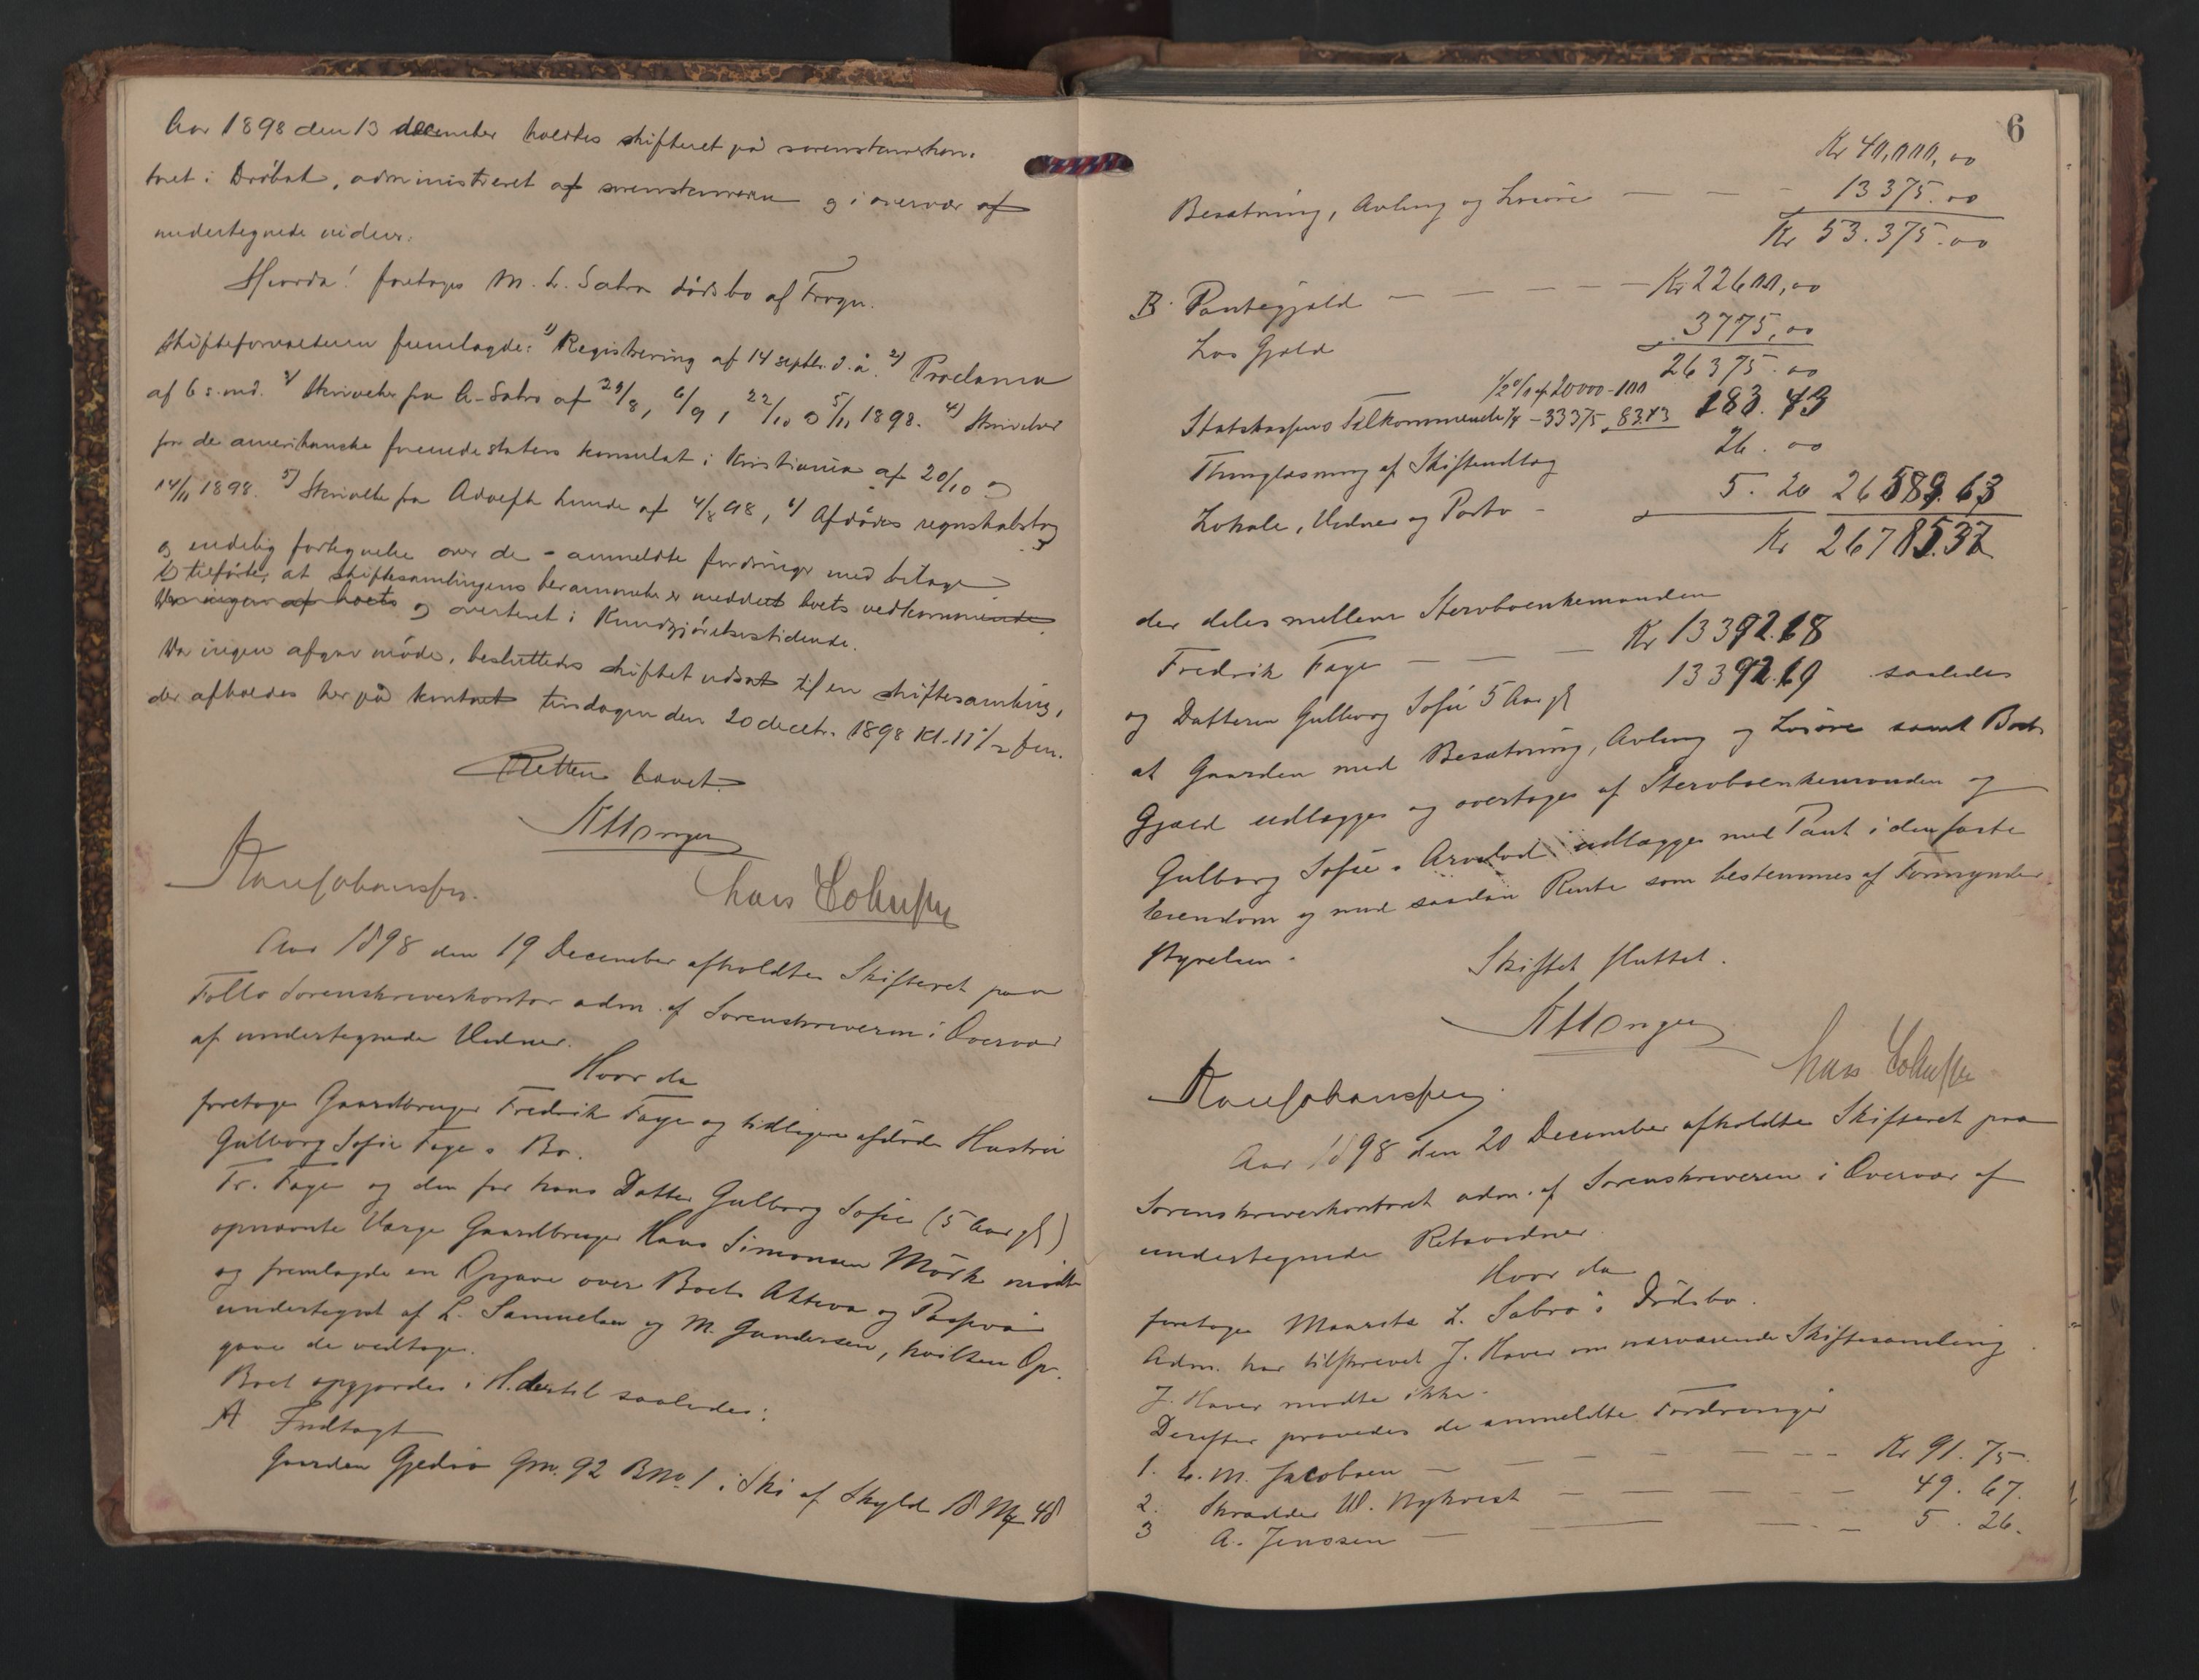 Aar 1898 den 13 december holdtes skifteret på sorenskriverkon-
toret i Dröbak, administreret af sorenskriveren og i overvær af
undertegnede vidner.
Hvorda! foretoges M. L. Sabro dödsbo af Frogn.
Skifteforvalteren fremlagde: 1) Registrering af 14 septbr. d. å. 2) Proclama
af 6 s. md. 3) Skrivelse fra A. Sabro af 29/8, 6/9, 22/10 og 5/11 1898. 4) Skrivelser
fra de amerikanske forenede staters konsulat i Kristiania af 20/10 og
14/11 1898. 5) Skrivelse fra Adolph Lunde af 4/8 98, 6) Afdödes regnskabsbog
og endelig fortegnelse over de anmeldte fordringer med bilage
tilförte, at skiftesamlingens berammelse er meddelt boets vedkommende
Var ingen af boets og averteret i Kundgjörelsestidende.
Da ingen afgav möde, besluttedes skiftet udsat til en skiftesamling,
der afholdes her på kontoret tirsdagen den 20 decbr. 1898 kl. 11 1/2 fm.
Retten hævet.
Hans
Aar 1898 den 19 December afholdtes Skifteret paa
Follo Sorenskriverkontor adm. af Sorenskriveren i Overvær
af undertegnede Vidner.
Hvor da
foretoges Gaardbruger Fredrik Faye og tidligere afdöde Hustru
Gulborg Sofie Fayes Bo.
Fr. Faye og den for hans Datter Gulborg Sofie (5 Aar gl)
opnævnte Værge Gaardbruger Hans Simonsen Mörk mödte
og fremlagde en Opgave over Boets Aktiva og Passiva
undertegnet af L. Samuelsen og M. Gundersen, hvilken Op-
gave de vedtoge.
Boet opgjordes i H. dertil saaledes:
A Indtægt
Gaarden Gjedsö Gno. 92 Bno. 1 i Ski af Skyld 18 Mk 48
6
Kr 40,000,00
Besætning, Avling og Lösöre — — - 13 375.00
Kr 53.375.00
B. Pantegjæld — — — — Kr 22600,00
Lös Gjæld 3775,00
26375.00
1/2 % af 20000 - 100
Statskassens Tilkommende 1/4 - 33375 83.43 183.43
Thinglæsning af Skifteudlæg 26.00
Lokale, Vidner og Porto - 5.20 26589.63
Kr 26785.37
der deles mellem Stervboenkemanden
Fredrik Faye — — — Kr 13392.68
og Datteren Gulborg Sofie 5 Aar gl 13392.69 saaledes
at Gaarden med Besætning, Avling og Lösöre samt Boets
Gjæld udlægges og overtages af Stervboenkemanden og
Gulborg Sofies Arvelod udlægges med Pant i den faste
Eiendom og med saadan Rente som bestemmes af Formynder-
styrelsen.
Skiftet sluttet.
Hans
Aar 1898 den 20 December afholdtes Skifteret paa
Sorenskriverkontoret adm. af Sorenskriveren i Overvær af
undertegnede Retsvidner.
Hvor da
foretoges Maurits L. Sabro's Dödsbo.
Adm. har tilskrevet J. Haver om nærværende Skiftesamling
J. Haver mödte ikke.
Derefter prövedes de anmeldte Fordringer
1. L. M. Jacobsen — — — — Kr 91.75.
2. Skrædder W. Nykvist — — — — 49.67.
3 A. Jensen — — — 5.26.